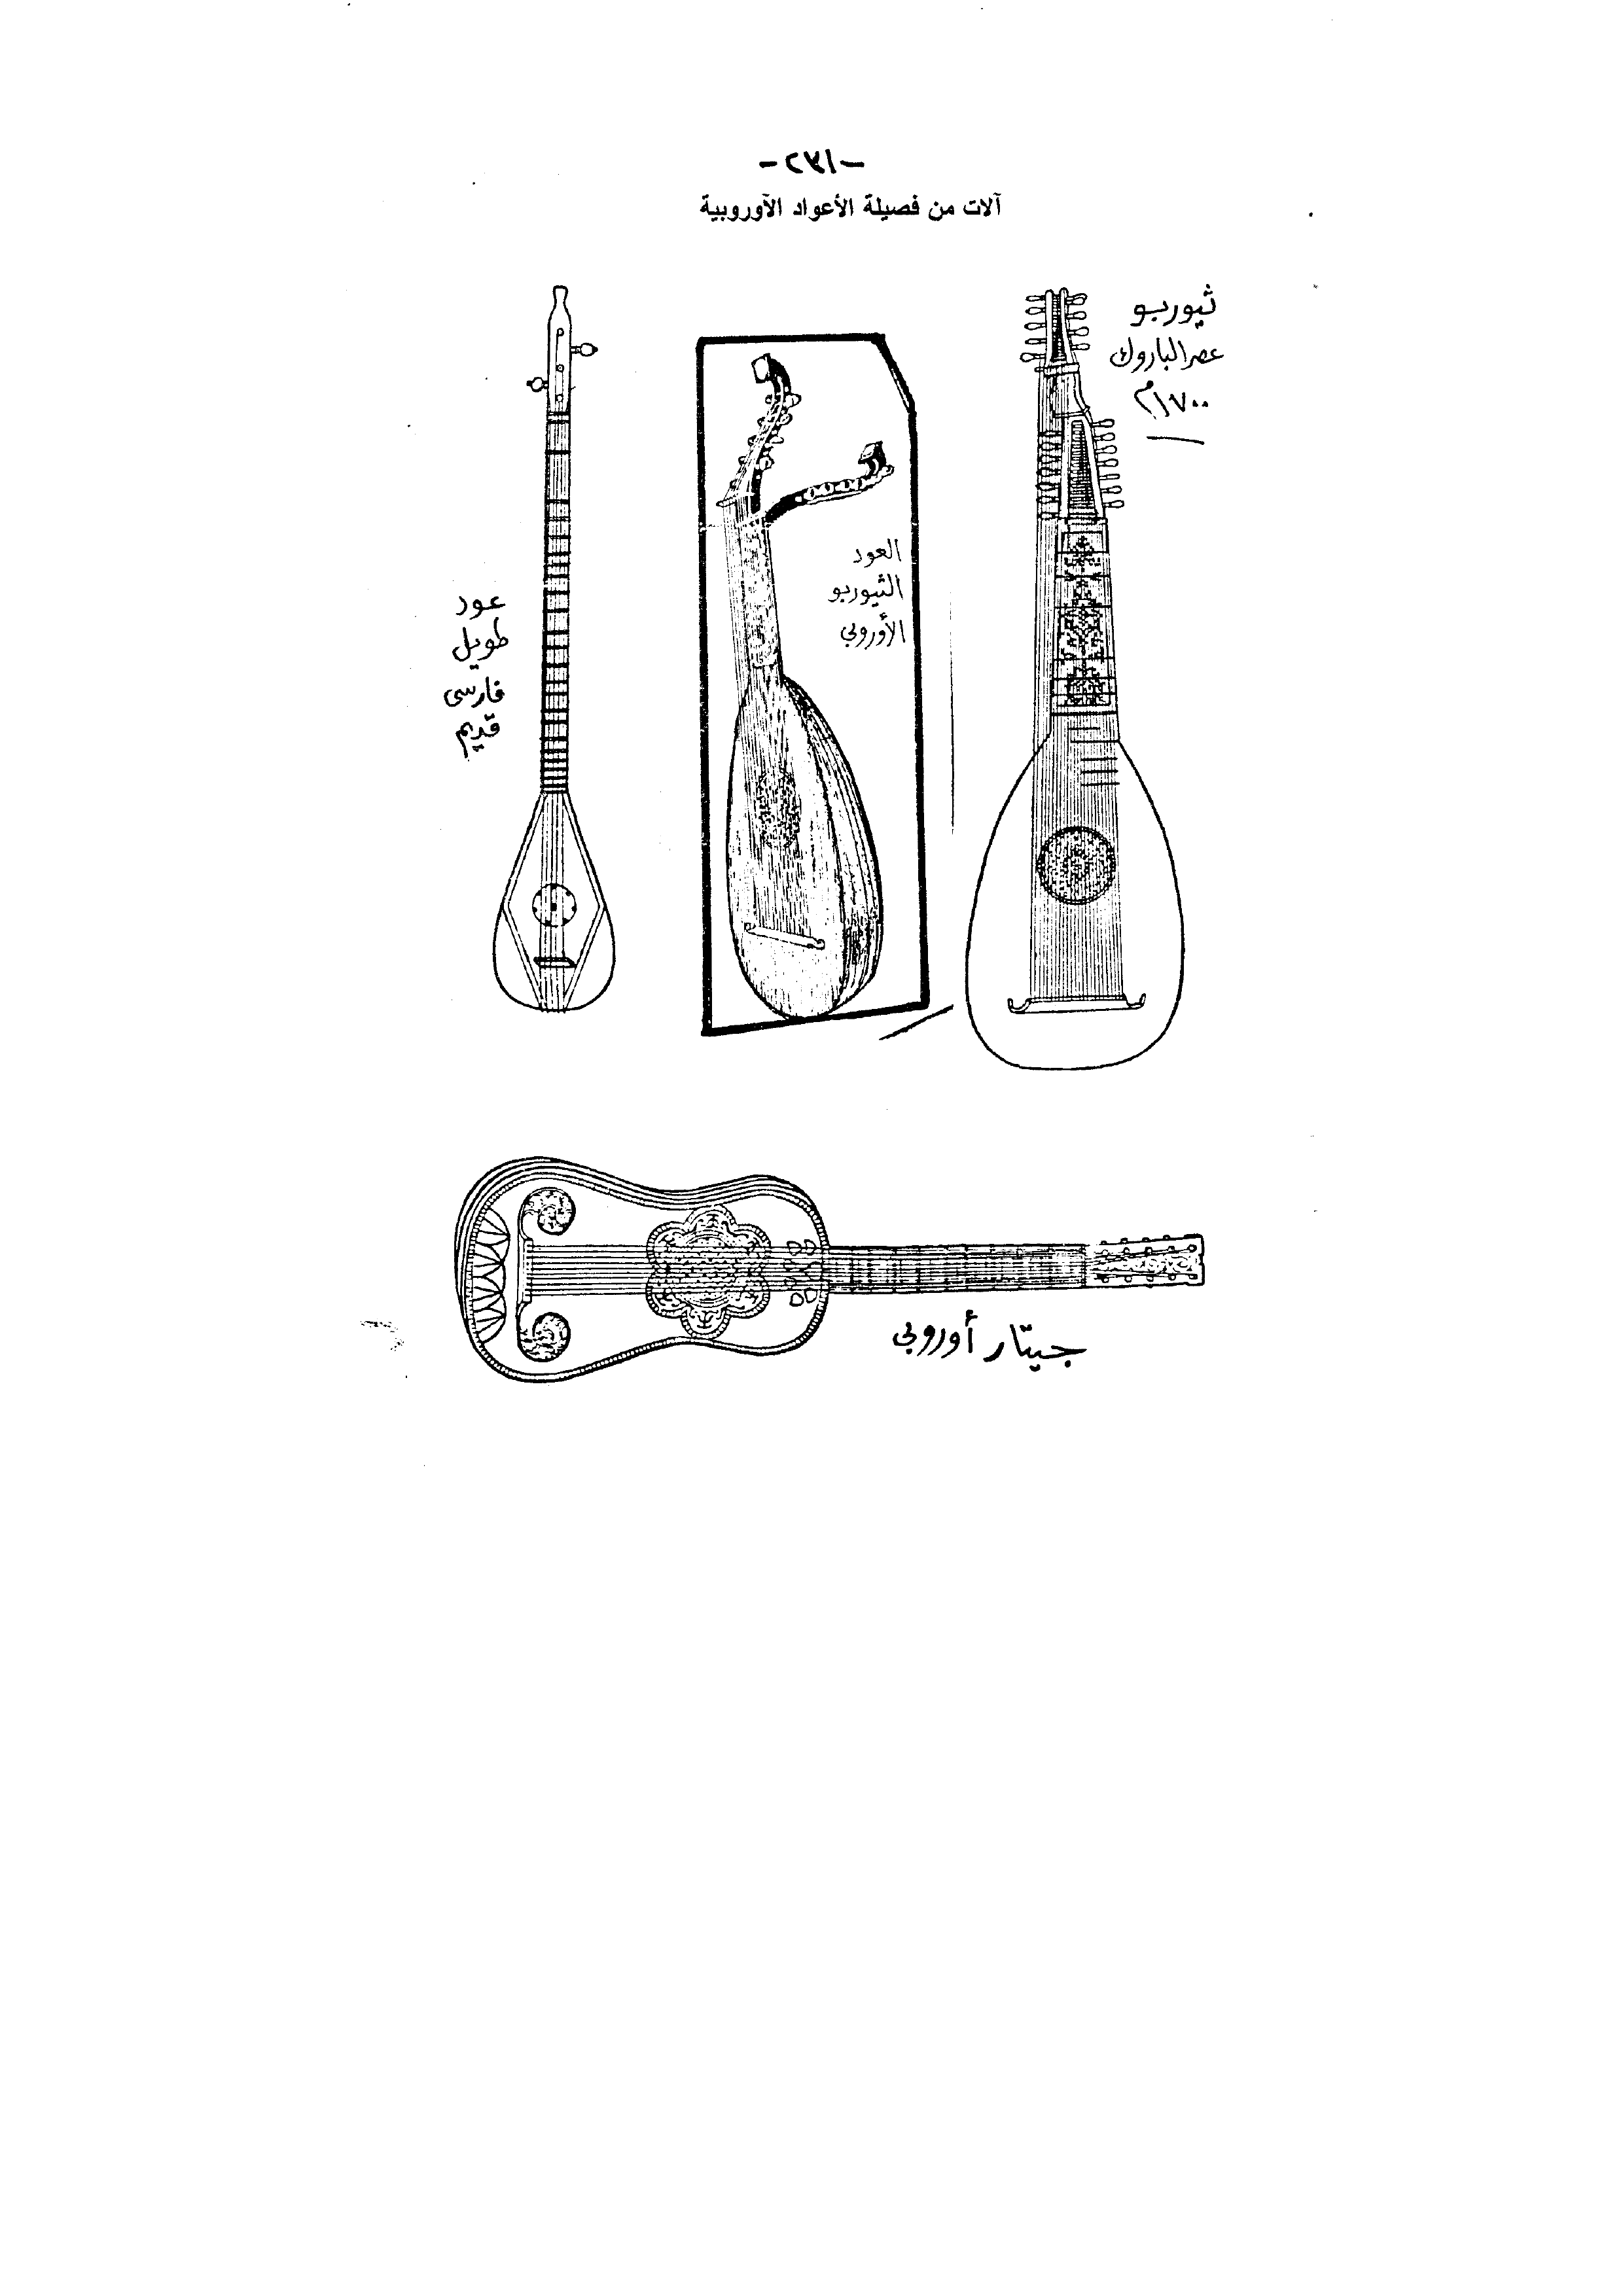 -٢٣١-
آلات من فصيلة الأعواد الآوروبية
ثيوربو
عصر الباروك
١٧٠٠م
العود
الثيوربو
الأوروبي
عود
طويل
فارسى
قديم
جيتار أوروبي